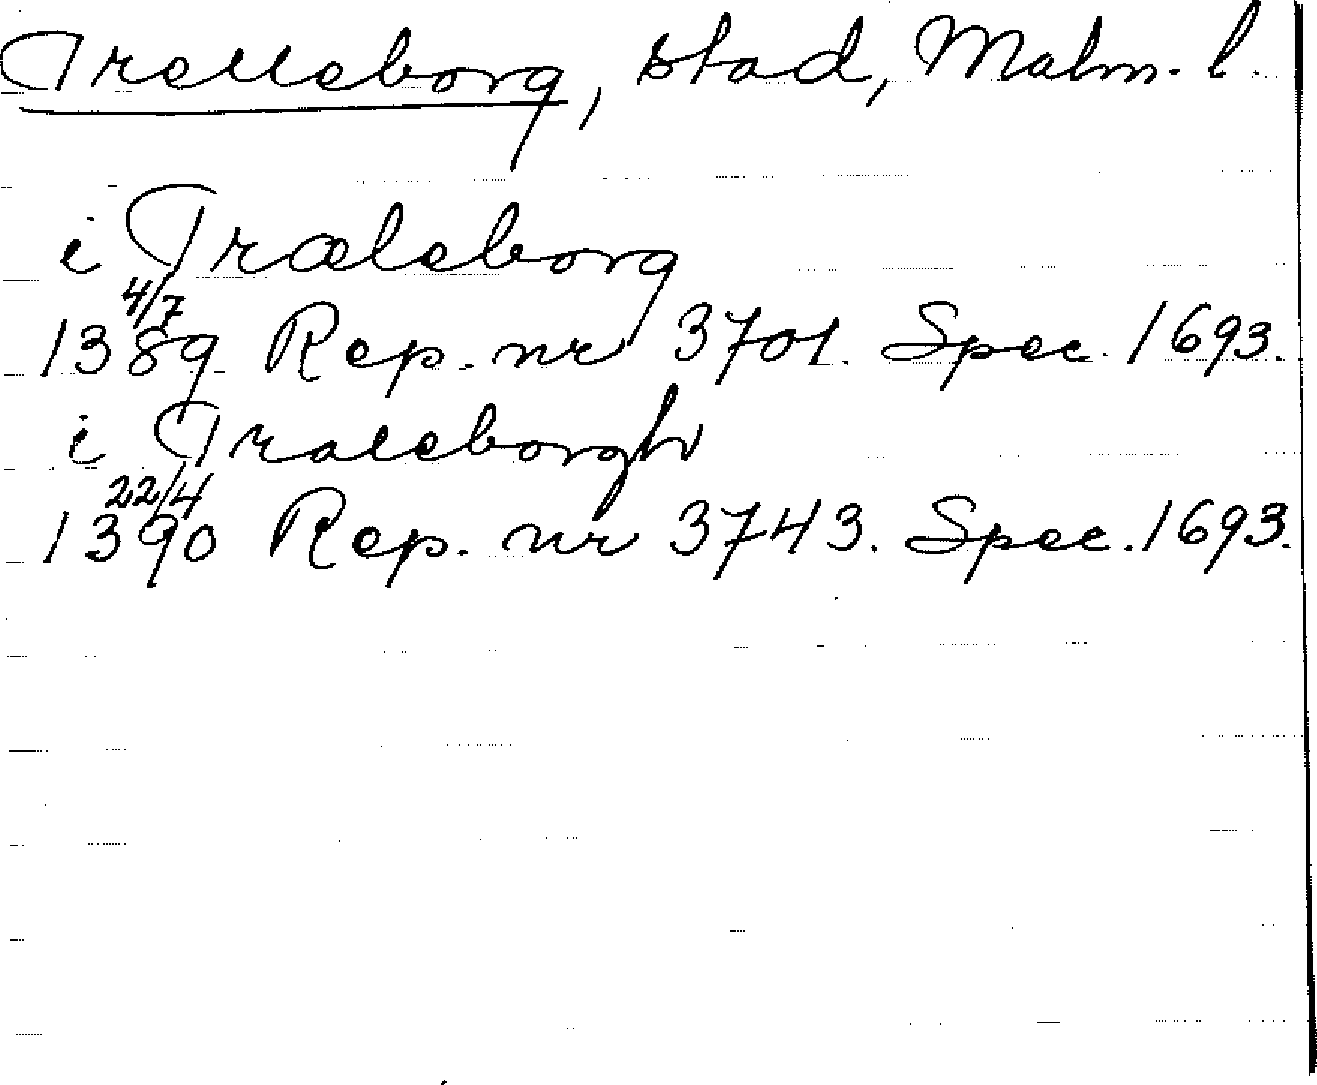 Trelleborg, stad, Malm. l.
i Træleborg
4/7
1389 Rep. nr 3701. Spec. 1693.
i Traleborgh
22/4
1390 Rep. nr 3743. Spec. 1693.